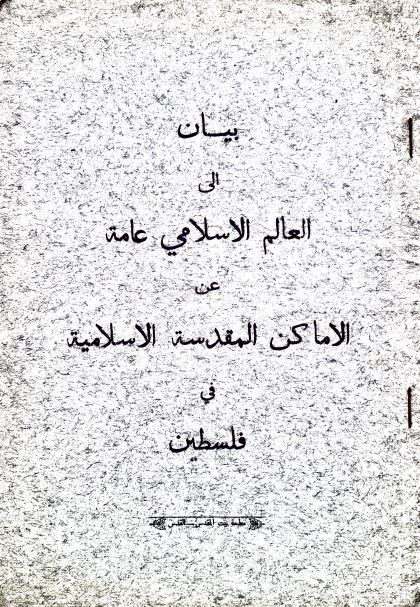 بيــان
الى
العالم الاسلامي عامة
عن
الاماكن المقدسة الاسلامية
في
فلسطين
مطبعة بيت المقدس ــ القدس